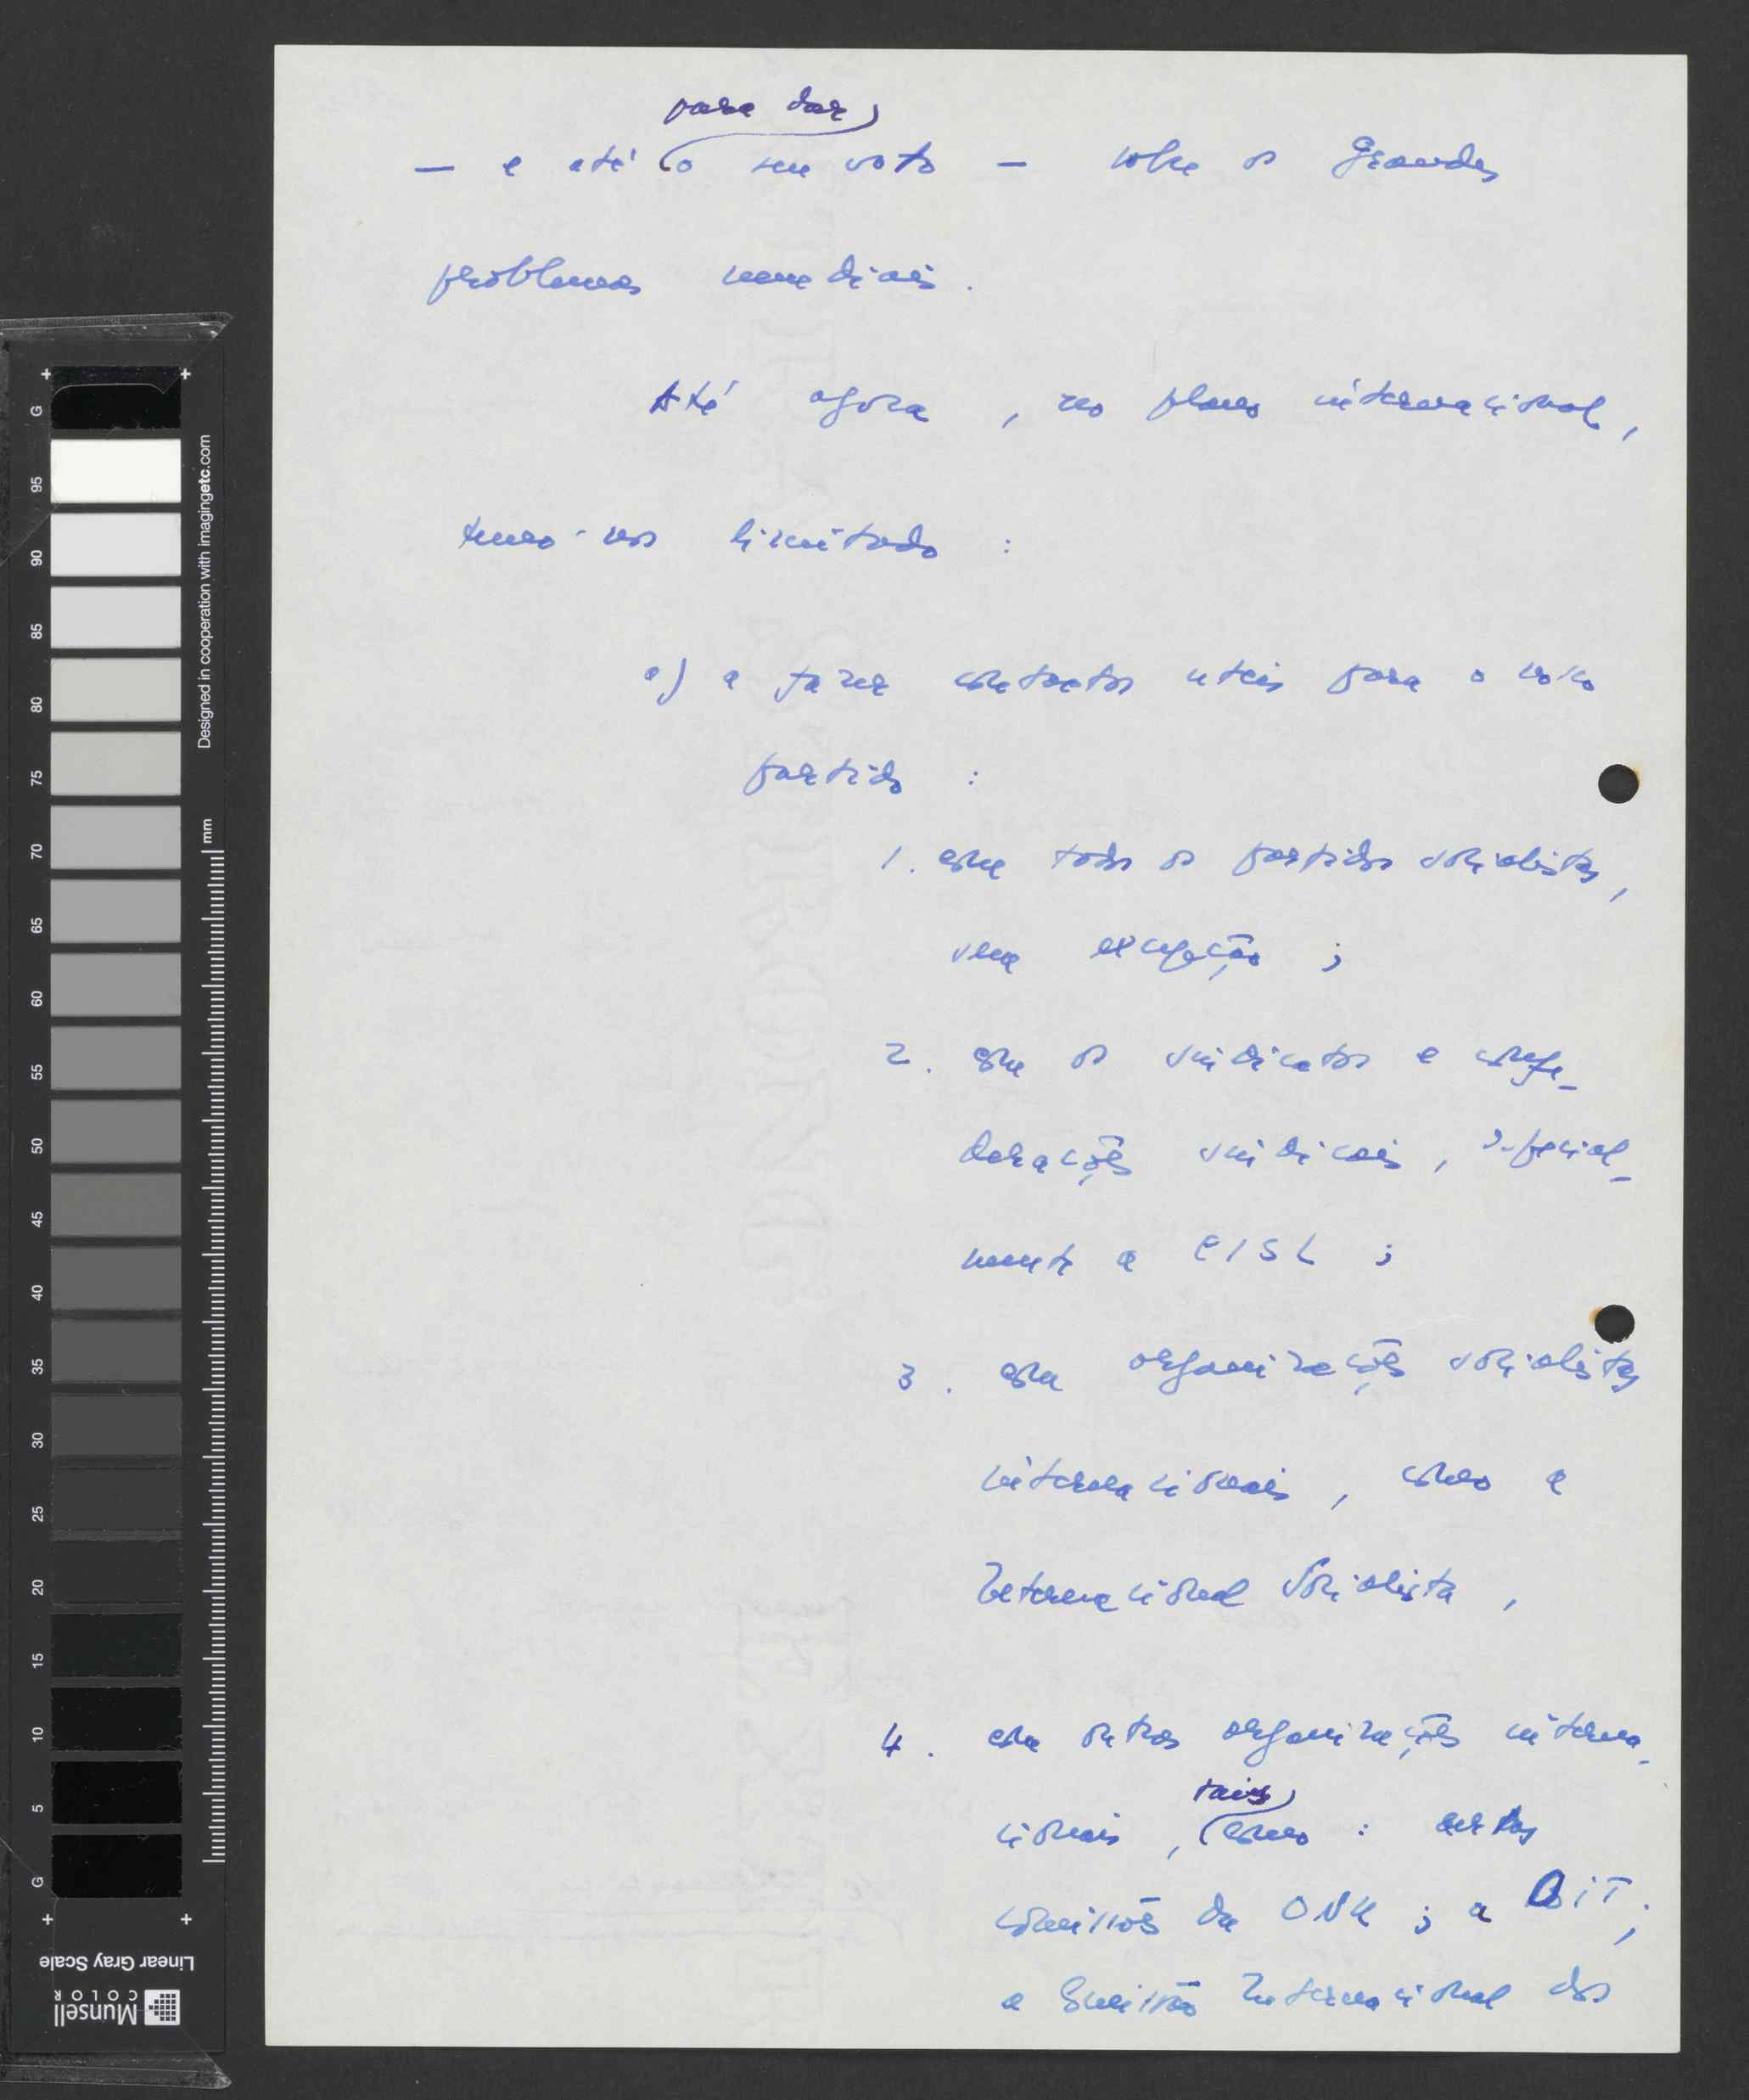 para dar
— e até o seu voto — sobre os Grandes
problemas mundiais.
Até agora, no plano internacional,
temo-nos limitado :
a) a fazer contactos uteis para o nosso
partido :
1. com todos os partidos socialistas,
sem excepção ;
2. com os sindicatos e confe-
derações sindicais, especial-
mente a CISL ;
3. com organizações socialistas
internacionais, como a
Internacional Socialista,
4. com outras organizações interna-
tais
cionais, como : certas
comissões da ONU ; a OIT ;
a Comissão Internacional dos
G 95 90 85 80 75 70 65 60 55 50 45 40 35 30 25 20 15 10 5 G
Designed in cooperation with imagingetc.com
mm
Linear Gray Scale
Munsell
COLOR